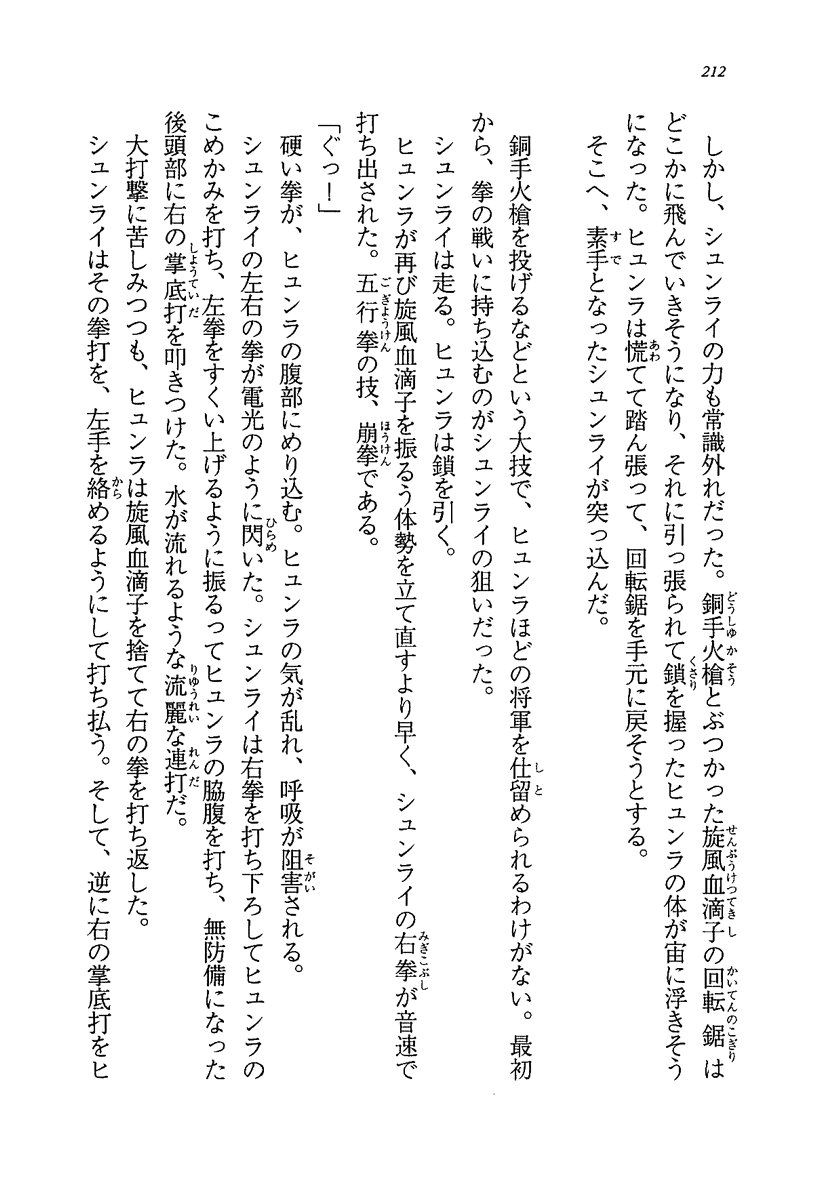 212
しかし、シュンライの力も常識外れだった。銅手火槍とぶつかった旋風血滴子の回転鋸は
どこかに飛んでいきそうになり、それに引っ張られて鎖を握ったヒュンラの体が宙に浮きそう
になった。ヒュンラは慌てて踏ん張って、回転鋸を手元に戻そうとする。
そこへ、素手となったシュンライが突っ込んだ。
銅手火槍を投げるなどという大技で、ヒュンラほどの将軍を仕留められるわけがない。最初
から、拳の戦いに持ち込むのがシュンライの狙いだった。
シュンライは走る。ヒュンラは鎖を引く。
ヒュンラが再び旋風血滴子を振るう体勢を立て直すより早く、シュンライの右拳が音速で
打ち出された。五行拳の技、崩拳である。
「ぐっ！」
硬い拳が、ヒュンラの腹部にめり込む。ヒュンラの気が乱れ、呼吸が阻害される。
シュンライの左右の拳が電光のように閃いた。シュンライは右拳を打ち下ろしてヒュンラの
こめかみを打ち、左拳をすくい上げるように振るってヒュンラの脇腹を打ち、無防備になった
後頭部に右の掌底打を叩きつけた。水が流れるような流麗な連打だ。
大打撃に苦しみつつも、ヒュンラは旋風血滴子を捨てて右の拳を打ち返した。
シュンライはその拳打を、左手を絡めるようにして打ち払う。そして、逆に右の掌底打をヒ